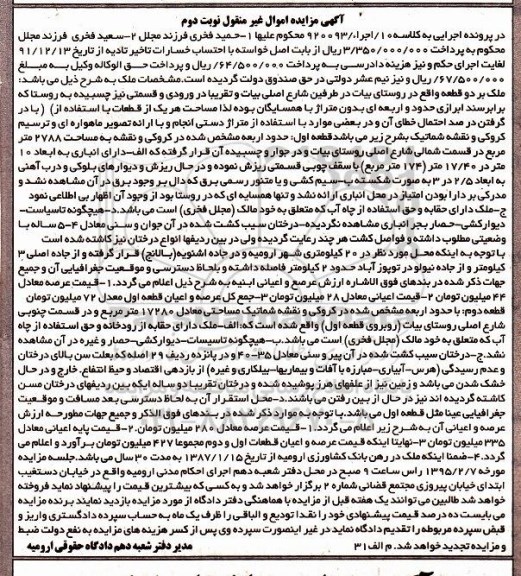 آگهی مزایده اموال غیر منقول نوبت دوم
در پرونده اجرایی به کلاسه ۱۰/اجرا/۹۲۰۰۹۳ محکوم علیها ۱-حمید فخری فرزند مجلل ۲-سعید فخری فرزند مجلل
محکوم به پرداخت ۳/۳۵۰/۰۰۰/۰۰۰ ریال از بابت اصل خواسته با احتساب خسارات تاخیر تادیه از تاریخ ۹۱/۱۲/۱۳
لغایت اجرای حکم و نیز هزینه دادرسی به پرداخت ۶۴/۵۰۰/۰۰۰ ریال و پرداخت حق الوکاله وکیل به مبلغ
۶۷/۵۰۰/۰۰۰ ریال و نیز نیم عشر دولتی در حق صندوق دولت گردیده است.مشخصات ملک به شرح ذیل می باشد:
ملک بر دو قطعه واقع در روستای بیات در طرفین شارع اصلی بیات و تقریبا در ورودی و قسمتی نیز چسبیده به روستا که
برابر سند ابرازی حدود و اربعه ای بدون متراژ با همسایگان بوده لذا مساحت هر یک از قطعات با استفاده از) (با در
گرفتن در صد احتمال خطای آن و در بعضی موارد با استفاده از متراژ دستی انجام و با ارائه تصویر ماهواره ای و ترسیم
کروکی و نقشه شماتیک بشرح زیر می باشد قطعه اول: حدود اربعه مشخص شده در کروکی و نقشه به مساحت ۲۷۸۸ متر
مربع در قسمت شمالی شارع اصلی روستای بیات و در جوار و چسبیده آن قرار گرفته که الف-دارای انباری به ابعاد ۱۰
متر در ۱۷/۴۰ متر (۱۷۴ متر مربع) با سقف چوبی قسمتی ریزش نموده و در حال ریزش و دیوارهای بلوکی و درب آهنی
به ابعاد ۲/۵ در ۳ به صورت شکسته ب-سیم کشی و یا منتور رسمی برق که دال بر وجود برق در آن مشاهده نشد و
مدرکی بر دارا بودن امتیاز در محل انباری ارائه نشد و تنها همسایه ای که در روستا بود از وجود آن اظهار بی اطلاعی نمود
ج-ملک دارای حقابه و حق استفاده از چاه آب که متعلق به خود مالک (مجلل فخری) است می باشد.د-هیچگونه تاسیاست-
دیوارکشی-حصار بجز انباری مشاهده نگردیده-درختان سیب کشت شده در آن جوان و سن معادل ۴-۵ ساله با
وضعیتی مطلوب داشته و فواصل کشت هر چند رعایت گردیده ولی در بین ردیفها انواع درختان نیز کاشته شده است
با توجه به اینکه محل مورد نظر در ۲۰ کیلومتری شهر ارومیه و در جاده اشنویه(بالانج) قرار گرفته و از جاده اصلی ۳
کیلومتر و از جاده نیولو در توپوز آباد حدود ۲ کیلومتر فاصله داشته و بلحاظ دسترسی و موقعیت جغرافیایی آن و جمیع
جهات ذکر شده در بندهای فوق الاشاره ارزش عرصه و اعیانی ابنیه به شرح ذیل اعلام می گردد.۱-قیمت عرصه معادل
۴۴ میلیون تومان ۲-قیمت اعیانی معادل ۲۸ میلیون تومان ۳-جمع کل عرصه و اعیان قطعه اول معدل ۷۲ میلیون تومان
قطعه دوم: با حدود اربعه مشخص شده در کروکی و نقشه شماتیک مساحتی معادل ۱۷۲۸۰ متر مربع و در قسمت جنوبی
شارع اصلی روستای بیات (روبروی قطعه اول) واقع شده است که: الف-ملک دارای حقابه از رودخانه و حق استفاده از چاه
آب که متعلق به خود مالک (مجلل فخری) است می باشد.ب-هیچگونه تاسیسات-دیوارکشی-حصار و غیره در آن مشاهده
نشد.ج-درختان سیب کشت شده در آن پیر و سنی معادل ۳۵-۴۰ و در پانزده ردیف ۲۹ اصله که بعلت سن بالای درختان
و عدم رسیدگی (هرس-آبیاری-مبارزه با آفات و بیماریها-بیلکاری و غیره) از بازدهی اقتصاد و حیظ انتفاع. خارج و در حال
خشک شدن می باشد و زمین نیز از علفهای هرز پوشیده شده و درختان تقریبا دو ساله ایکه بین ردیفهای درختان مسن
کاشته گردیده اند نیز در حال از بین رفتن می باشند.د-محل استقرار آن به لحاظ دسترسی بعد مسافت و موقعیت
جغرافیایی عینا مثل قطعه اول می باشد.با توجه به موارد ذکر شده در بندهای فوق الذکر و جمیع جهات مطروحه ارزش
عرصه و اعیانی آن به شرح زیر اعلام می گردد: ۱-قیمت عرصه معادل ۲۸۰ میلیون تومان.۲-قیمت پایه اعیانی معادل
۳۳۵ میلیون تومان ۳-نهایتا اینکه قیمت عرصه و اعیان قطعات اول و دوم مجموعا ۴۲۷ میلیون تومان برآورد و اعلام می
گردد.۴-ضمنا اینکه ملک در رهن بانک کشاورزی ارومیه از تاریخ ۱۳۸۷/۱/۱۵ به مدت ۳۰ سال می باشد.جلسه مزایده
مورخه ۱۳۹۵/۲/۷ راس ساعت ۹ صبح در محل دفتر شعبه دهم اجرای احکام مدنی ارومیه واقع در خیابان دستغیب
ابتدای خیابان پیروزی مجتمع قضائی شماره ۲ برگزار خواهد شد و به کسی که بیشترین قیمت را پیشنهاد نماید فروخته
خواهد شد طالبین می توانند یک هفته قبل از مزایده با هماهنگی دفتر دادگاه از مورد مزایده بازدید نمایند برنده مزایده
می بایست ده درصد قیمت پیشنهادی خود را نقدا تودیع و الباقی را ظرف یک ماه به حساب سپرده دادگستری واریز و
قبض سپرده مربوطه را تقدیم دادگاه نماید در غیر اینصورت سپرده وی پس از کسر هزینه های مزایده به نفع دولت ضبط
و مزایده تجدید خواهد شد. م الف ۳۱ مدیر دفتر شعبه دهم دادگاه حقوقی ارومیه